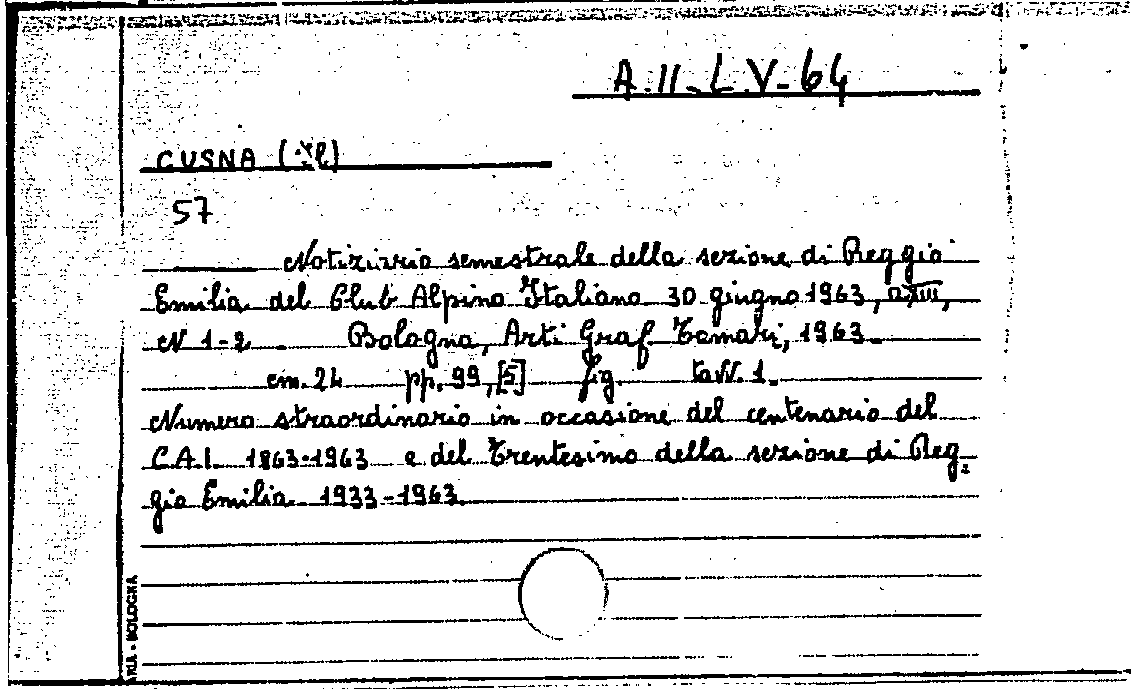 A.II.L.V.64
CUSNA (Il)
57
Notiziario semestrale della sezione di Reggio
Emilia del Club Alpino Italiano 30 giugno 1963, a.XIII,
N 1-2 - Bologna, Arti Graf. Tamari, 1963.
cm. 24 pp. 99,[5] fig. tavv. 1.
Numero straordinario in occasione del centenario del
C.A.I. 1863-1963 e del Trentesimo della sezione di Reg-
gio Emilia 1933-1963.
- BOLOGNA